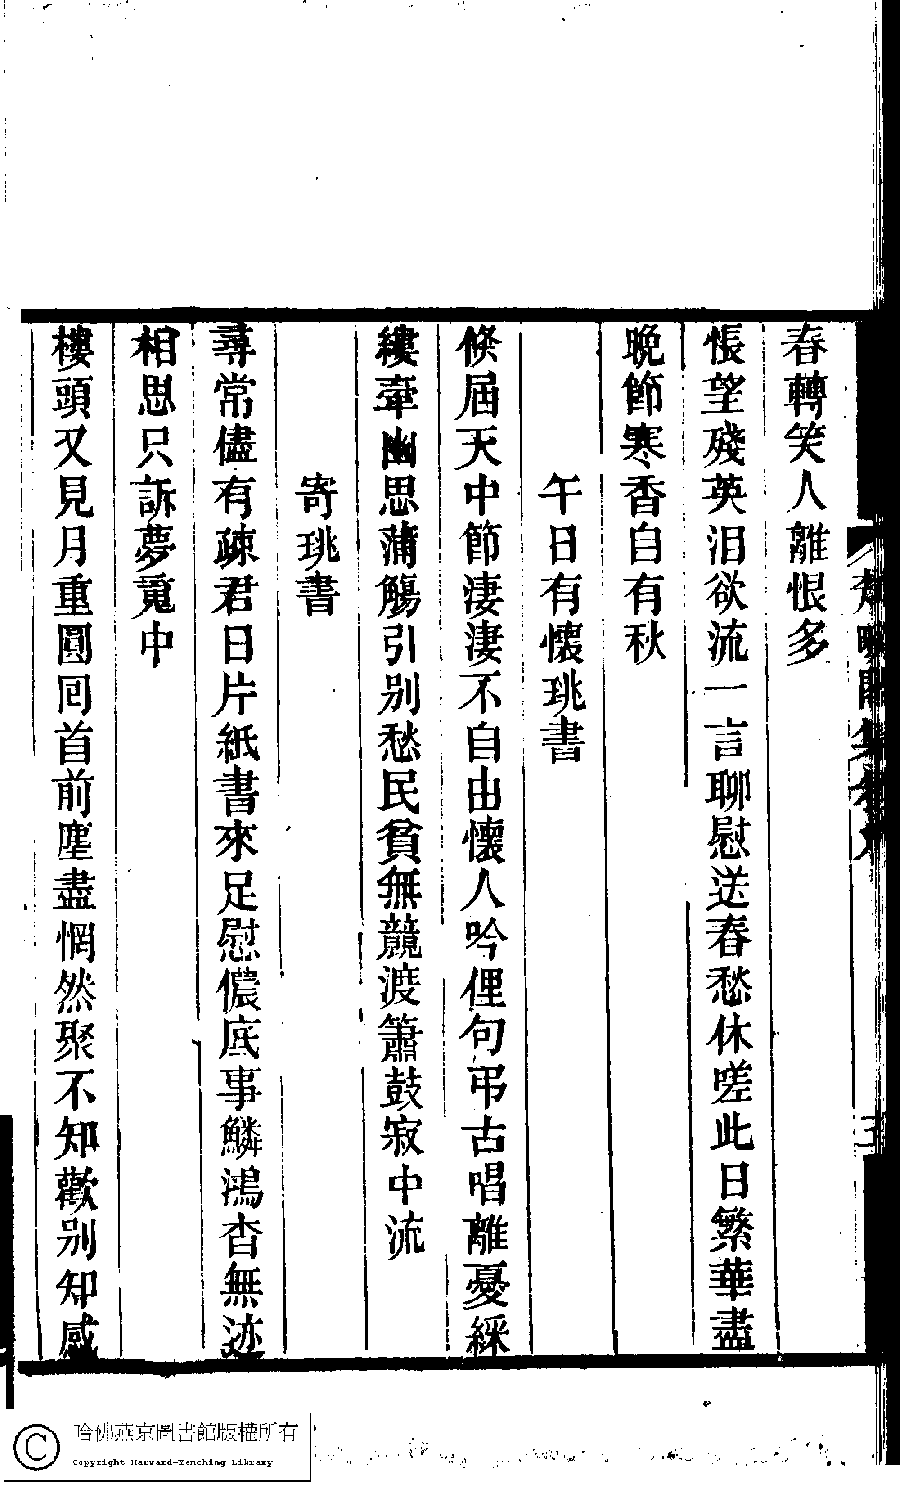 春轉笑人離恨多
悵望殘英泪欲流一言聊慰送春愁休嗟此日繁華盡
晚節寒香自有秋
午日有懷珧書
倐屆天中節淒淒不自由懷人吟俚句弔古唱離憂綵
縷牽幽思蒲觴引别愁民貧無競渡簫鼓寂中流
寄珧書
尋常儘有疎君日片紙書來足慰儂底事鱗鴻杳無迹
相思只訴夢䰟中
樓頭又見月重圓囘首前塵盡惘然聚不知歡别知感
哈佛燕京圖書館版權所有
Copyright Harvard-Yenching Library